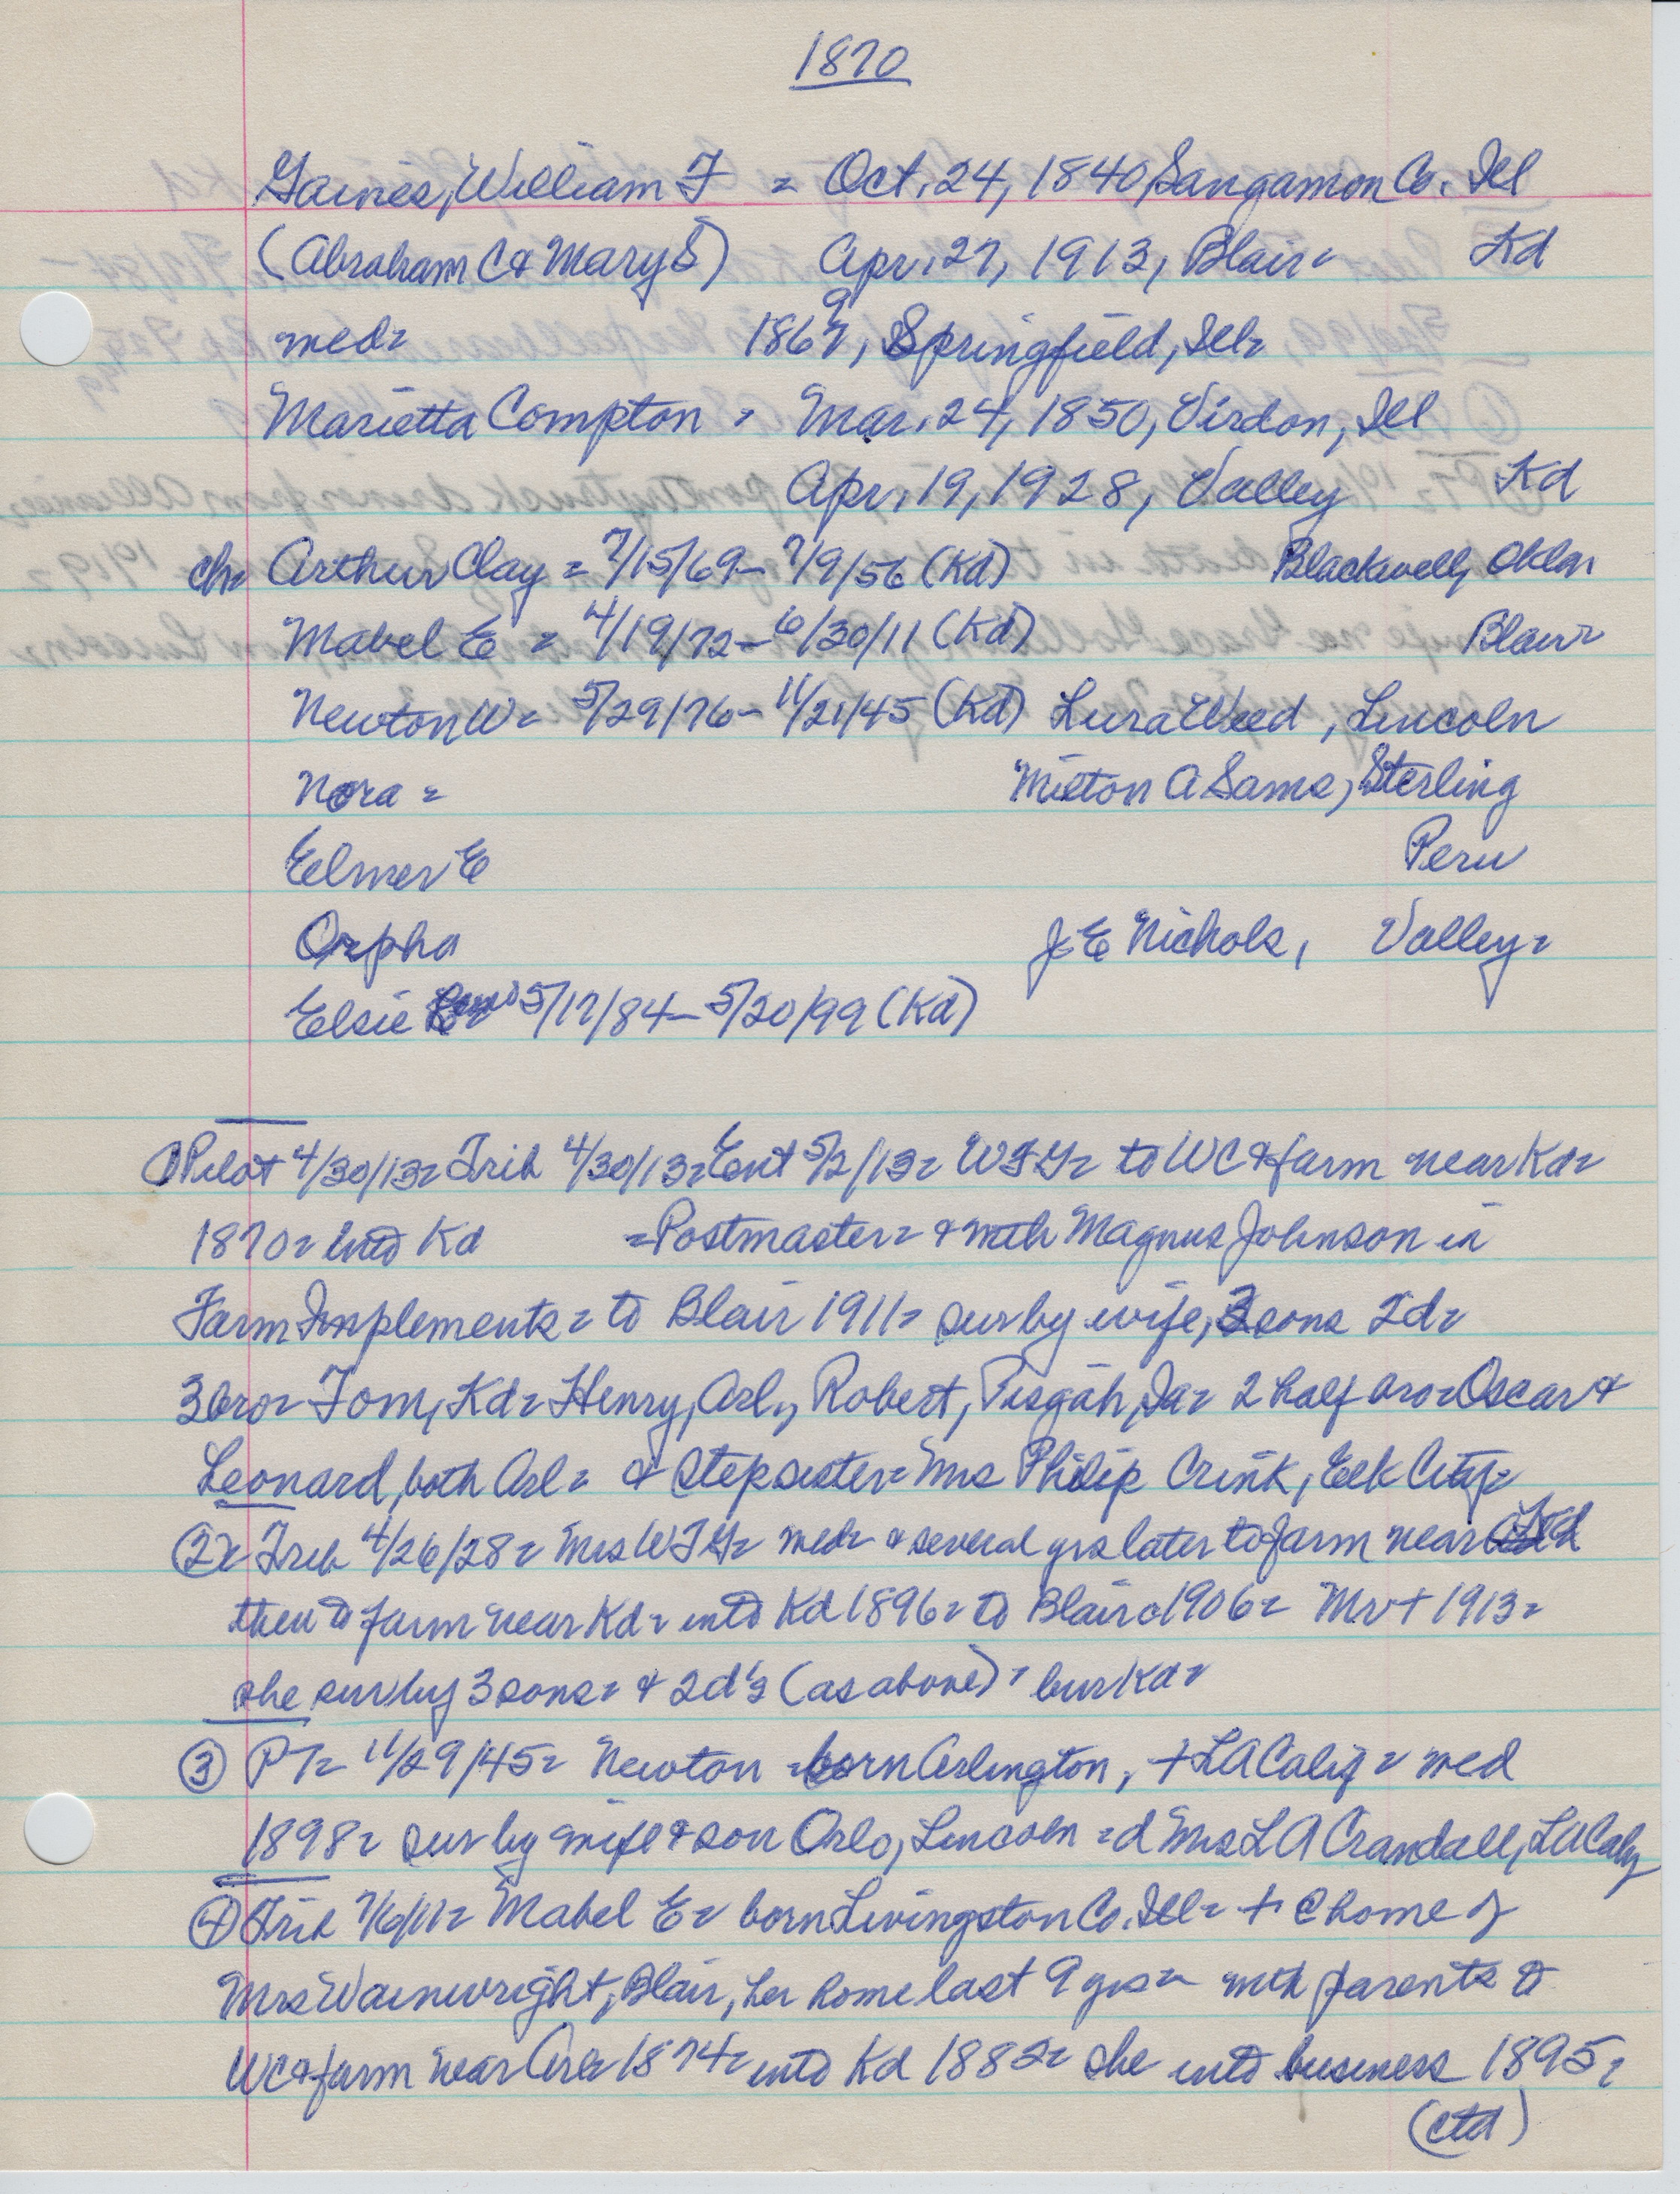 1870
Gaines, William F = Oct. 24, 1840, Sangamon Co. Ill
(Abraham C & Mary S) Apr. 27, 1913, Blair = Kd
med = 1869, Springfield, Ill =
Marietta Compton = Mar. 24, 1850, Virdon, Ill
Apr. 19, 1928, Valley Kd
ch = Arthur Clay = 7/15/69 - 7/9/56 (Kd) Blackwell, Okla
Mabel E = 4/19/72 - 6/30/11 (Kd) Blair =
Newton W = 5/29/76 - 11/21/45 (Kd) Lura Weed, Lincoln
Nora = Milton A Sams, Sterling
Elmer E Peru
Orpha J E Nichols, Valley =
Elsie 5/17/84 - 5/20/99 (Kd)
① Pilot 4/30/13 = Trib 4/30/13 = Ent 5/2/13 = WFG = to WC & farm near Kd =
1870 = into Kd = Postmaster = & with Magnus Johnson in
Farm Implements = to Blair 1911 = sur by wife, 3 sons 2d =
3 bro = Tom, Kd = Henry, Arl., Robert, Pisgah, Ia = 2 half bro = Oscar &
Leonard, both Arl = & stepsister = Mrs Philip Crink, Elk City =
② = Trib 4/26/28 = Mrs WFG = med = & several yrs later to farm near
then to farm near Kd = into Kd 1896 = to Blair c1906 = Mr + 1913 =
she sur by 3 sons = & 2 d's (as above) = bur Kd =
③ PT = 11/29/45 = Newton = born Arlington, + LA Calif = med
1898 = sur by wife & son Orlo, Lincoln = d Mrs L A Crandall, LA Calif
④ Trib 7/6/11 = Mabel E = born Livingston Co. Ill = + @ home of
Mrs Wainwright, Blair, her home last 9 yrs = with parents to
WC & farm near Arl = 1874 = into Kd 1882 = she into business 1895 =
(ctd)